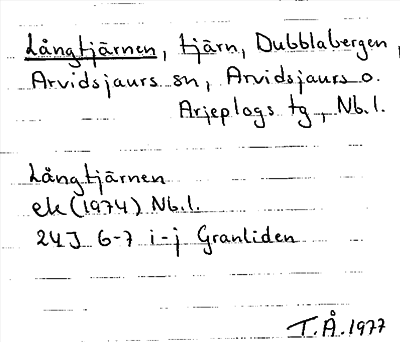 Långtjärnen, tjärn, Dubblabergen,
Arvidsjaurs sn, Arvidsjaurs o.
Arjeplogs tg, Nb.l.
Långtjärnen
ek (1974) Nb.l.
24J 6-7 i-j Granliden
T.Å. 1977